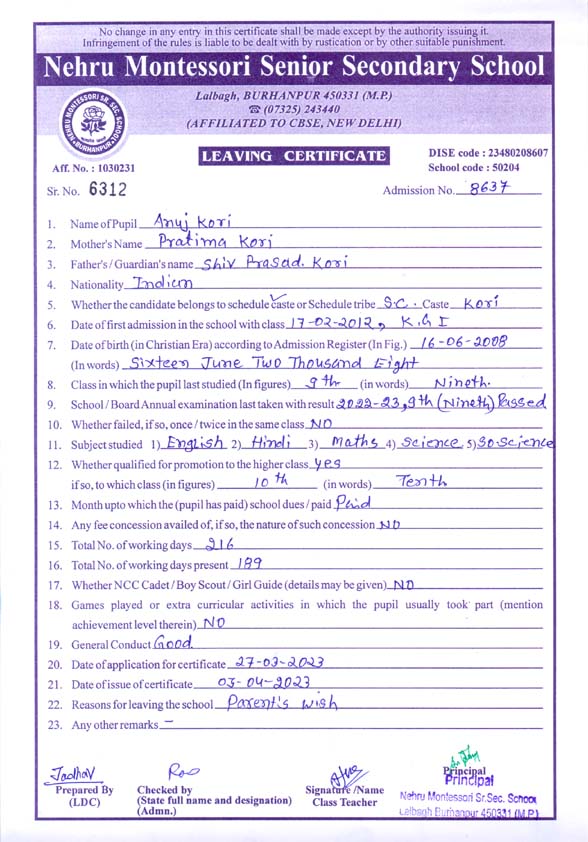 No change in any entry in this certificate shall be made except by the authority issuing it.
Infringement of the rules is liable to be dealt with by rustication or by other suitable punishment.
Nehru Montessori Senior Secondary School
Lalbagh, BURHANPUR 450331 (M.P.)
☎ (07325) 243440
(AFFILIATED TO CBSE, NEW DELHI)
NEHRU MONTESSORI SR. SEC. SCHOOL
BURHANPUR
LEAVING CERTIFICATE
DISE code : 23480208607
Aff. No. : 1030231
School code : 50204
Sr. No. 6312
Admission No. 8637
1. Name of Pupil Anuj Kori
2. Mother's Name Pratima Kori
3. Father's / Guardian's name Shiv Prasad. Kori
4. Nationality Indian
5. Whether the candidate belongs to schedule caste or Schedule tribe S.C. Caste Kori
6. Date of first admission in the school with class 17-02-2012, K.G I
7. Date of birth (in Christian Era) according to Admission Register (In Fig.) 16-06-2008
(In words) Sixteen June Two Thousand Eight
8. Class in which the pupil last studied (In figures) 9th (in words) Nineth.
9. School / Board Annual examination last taken with result 2022-23, 9th (Nineth) Passed
10. Whether failed, if so, once / twice in the same class NO
11. Subject studied 1) English 2) Hindi 3) Maths 4) Science 5) SoScience
12. Whether qualified for promotion to the higher class yes
if so, to which class (in figures) 10th (in words) Tenth
13. Month upto which the (pupil has paid) school dues / paid Paid
14. Any fee concession availed of, if so, the nature of such concession NO
15. Total No. of working days 216
16. Total No. of working days present 189
17. Whether NCC Cadet / Boy Scout / Girl Guide (details may be given) NO
18. Games played or extra curricular activities in which the pupil usually took part (mention
achievement level therein) NO
19. General Conduct Good.
20. Date of application for certificate 27-03-2023
21. Date of issue of certificate 03-04-2023
22. Reasons for leaving the school Parent's wish
23. Any other remarks –
Jadhav
Rao
Prepared By
(LDC)
Checked by
(State full name and designation)
(Admn.)
Signature /Name
Class Teacher
Principal
Principal
Nehru Montessori Sr.Sec. School
Lalbagh Burhanpur 450331 (M.P.)